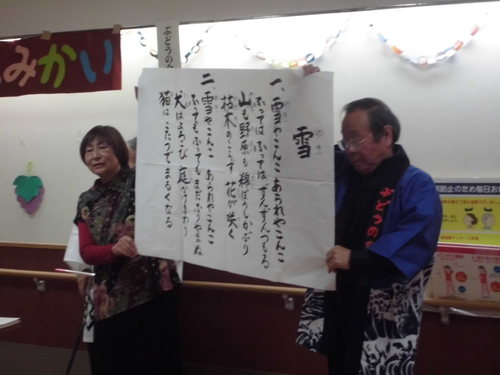 みかい
ぶどうの
雪
一、雪やこんこ あられやこんこ
ふっては ふっては ずんずんつもる
山も野原も 綿ぼうしかぶり
枯木のこらず 花が咲く
二、雪やこんこ あられやこんこ
ふっても ふっても まだふりやまぬ
犬はよろこび 庭かけまわり
猫はこたつでまるくなる
ぶどうの
防止のため毎日お